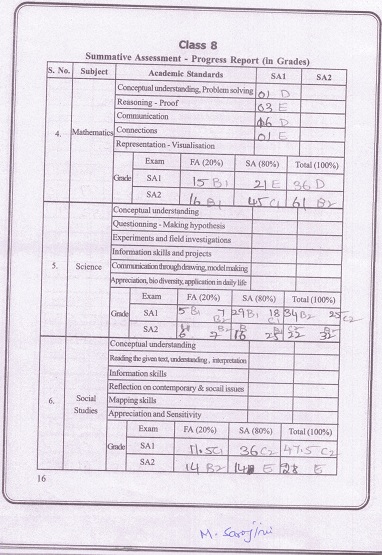 Class 8
Summative Assessment - Progress Report (in Grades)
S. No. Subject Academic Standards SA1 SA2
4. Mathematics
Conceptual understanding, Problem solving 01 D
Reasoning - Proof 03 E
Communication 06 D
Connections 01 E
Representation - Visualisation
Grade Exam FA (20%) SA (80%) Total (100%)
SA1 15 B1 21 E 36 D
SA2 16 B1 45 C1 61 B2
5. Science
Conceptual understanding
Questionning - Making hypothesis
Experiments and field investigations
Information skills and projects
Communication through drawing, model making
Appreciation, bio diversity, application in daily life
Grade Exam FA (20%) SA (80%) Total (100%)
SA1 5 B1 7 B2 29 B1 18 C1 34 B2 25 C2
SA2 8 7 B2 16 B 25 B1 22 32
6. Social Studies
Conceptual understanding
Reading the given text, understanding, interpretation
Information skills
Reflection on contemporary & socail issues
Mapping skills
Appreciation and Sensitivity
Grade Exam FA (20%) SA (80%) Total (100%)
SA1 11.5 C1 36 C2 47.5 C2
SA2 14 B2 14 E 28 E
16
M. Sarojini